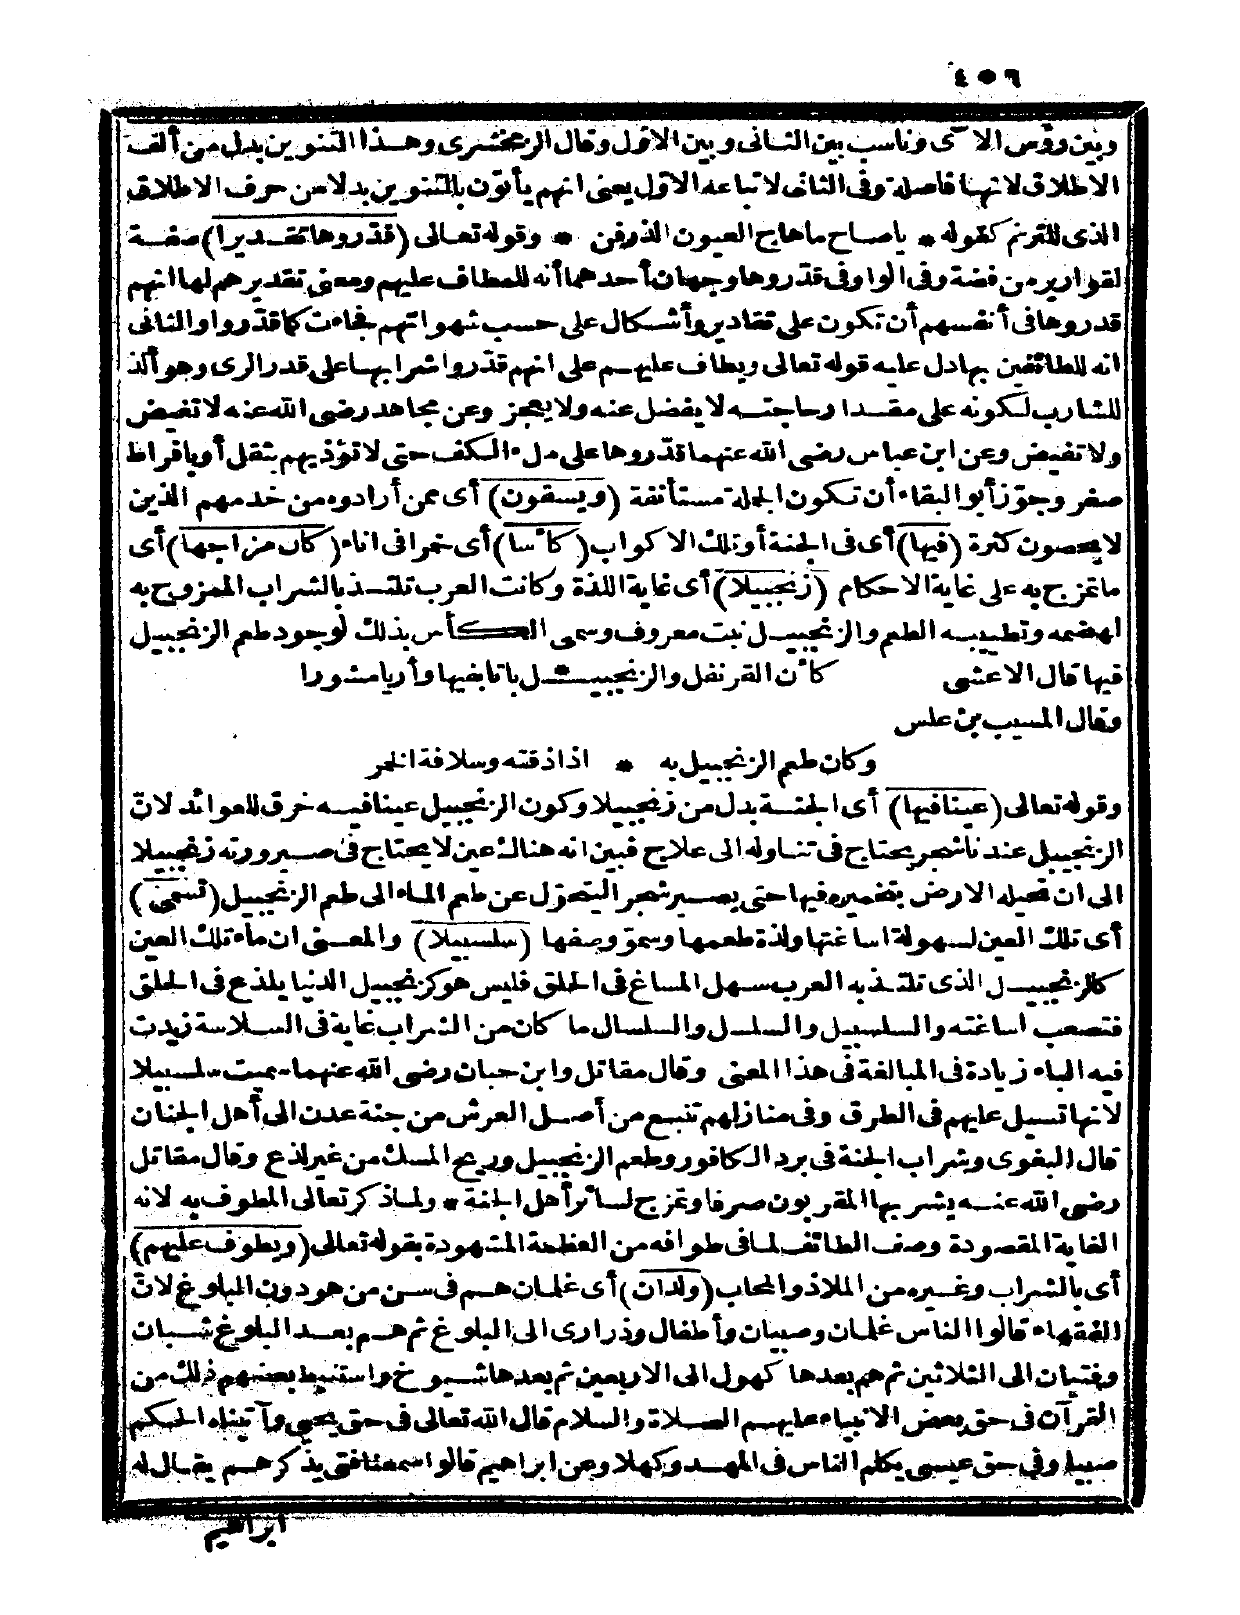 ٤٥٦
وبين رؤس الآى وناسب بين الثانى وبين الاول وقال الزمخشرى وهذا التنوين بدل من ألف
الاطلاق لانها فاصلة وفى الثانى لاتباعه الاول يعنى انهم يأتون بالتنوين بدلا من حرف الاطلاق
الذى للترنم كقوله * ياصاح ماهاج العيون الذرفن * وقوله تعالى (قدّروها تقديرا) صفة
لقوارير من فضة وفى الواو فى قدّروها وجهان أحدهما أنه للمطاف عليهم ومعنى تقديرهم لها انهم
قدروها فى أنفسهم أن تكون على تقادير وأشكال على حسب شهواتهم فجاءت كما قدّروا والثانى
انه للطائفين بها دل عليه قوله تعالى ويطاف عليهم على انهم قدّروا شرابها على قدر الرى وهو ألذ
للشارب لكونه على مقدار حاجته لا يفضل عنه ولا يعجز وعن مجاهد رضى الله عنه لا تفيض
ولا تغيض وعن ابن عباس رضى الله عنهما قدّروها على ملء الكف حتى لا تؤذيهم بثقل أو بافراط
صغر وجوّز أبو البقاء أن تكون الجملة مستأنفة (ويسقون) أى ممن أرادوه من خدمهم الذين
لا يحصون كثرة (فيها) أى فى الجنة أو تلك الاكواب (كأسا) أى خمرا فى اناء (كان مزاجها) أى
ما تمزج به على غاية الاحكام (زنجبيلا) أى غاية اللذة وكانت العرب تلتذ بالشراب الممزوج به
لهضمه وتطييبه الطعم والزنجبيل نبت معروف وسمى الكأس بذلك لوجود طعم الزنجبيل
فيها قال الاعشى كأن القرنفل والزنجبيل باتا بفيها وأريا مشورا
وقال المسيب بن علس
وكان طعم الزنجبيل به * اذا ذقته وسلافة الخمر
وقوله تعالى (عينا فيها) أى الجنة بدل من زنجبيلا وكون الزنجبيل عينا فيه خرق للعوائد لانّ
الزنجبيل عندنا شجر يحتاج فى تناوله الى علاج فبين انه هناك عين لا يحتاج فى صيرورته زنجبيلا
الى ان تحيله الارض بتضميره فيها حتى يصير شجر التحوّل عن طعم الماء الى طعم الزنجبيل (تسمى)
أى تلك العين لسهولة اساغتها ولذة طعمها وسموّ وصفها (سلسبيلا) والمعنى ان ماء تلك العين
كالزنجبيل الذى تلتذ به العرب سهل المساغ فى الحلق فليس هو كزنجبيل الدنيا يلذع فى الحلق
فتصعب اساغته والسلسبيل والسلسل والسلسال ما كان من الشراب غاية فى السلاسة زيدت
فيه الباء زيادة فى المبالغة فى هذا المعنى وقال مقاتل وابن حبان رضى الله عنهما سميت سلسبيلا
لانها تسيل عليهم فى الطرق وفى منازلهم تنبع من أصل العرش من جنة عدن الى أهل الجنان
قال البغوى وشراب الجنة فى برد الكافور وطعم الزنجبيل وريح المسك من غير لذع وقال مقاتل
رضى الله عنه يشربها المقربون صرفا وتمزج لسائر أهل الجنة * ولما ذكر تعالى المطوف به لانه
الغاية المقصودة وصف الطائف لما فى طوافه من العظمة المشهودة بقوله تعالى (ويطوف عليهم)
أى بالشراب وغيره من الملاذ والمحاب (ولدان) أى غلمان هم فى سن من هو دون البلوغ لانّ
الفقهاء قالوا الناس غلمان وصبيان وأطفال وذرارى الى البلوغ ثم هم بعد البلوغ شبان
وفتيان الى الثلاثين ثم هم بعدها كهول الى الاربعين ثم بعدها شيوخ واستنبط بعضهم ذلك من
القرآن فى حق بعض الانبياء عليهم الصلاة والسلام قال الله تعالى فى حق يحيى وآتيناه الحكم
صبيا وفى حق عيسى يكلم الناس فى المهد وكهلا وعن ابراهيم قالوا سمعنا فتى يذكرهم يقال له
ابراهيم